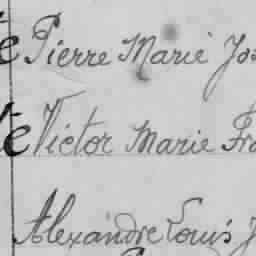 Pierre Marie
Victor Marie
Alexandre Louis